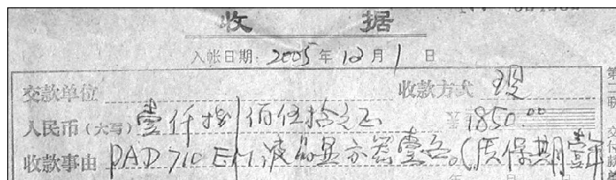 收 据
入帐日期：2005年12月1日
交款单位 收款方式 现
人民币（大写）壹仟捌佰伍拾元正 1850.00
收款事由 PAD710EM液晶显示器壹台。（质保期壹年